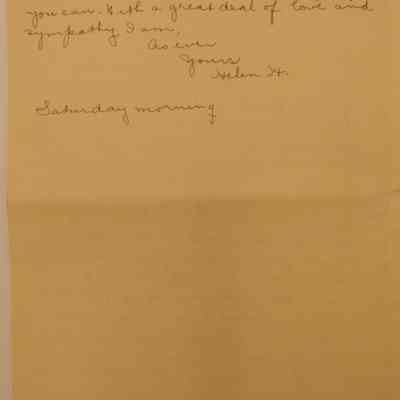 you can. With a great deal of love and
sympathy I am,
As ever
Yours
Helen H.
Saturday morning